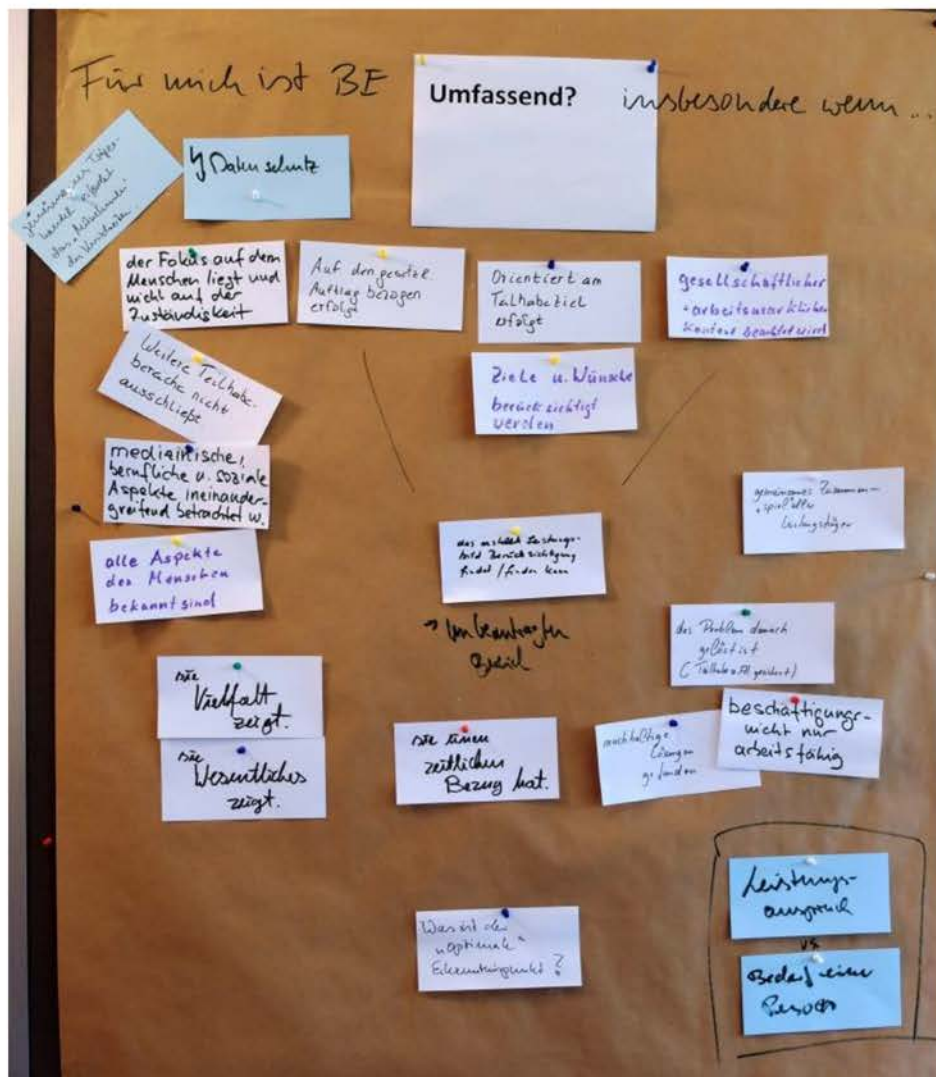 Für mich ist BE
Umfassend?
insbesondere wenn...
Datenschutz
der Fokus auf dem
Menschen liegt und
nicht auf der
Zuständigkeit
Auf den gesetzl.
Auftrag bezogen
erfolgt
Orientiert am
Teilhabeziel
erfolgt
gesellschaftlicher
+ arbeitsmarktlicher
Kontext beachtet wird
Weitere Teilhabe-
bereiche nicht
ausschließt
Ziele u. Wünsche
berücksichtigt
werden
medizinische,
berufliche u. soziale
Aspekte ineinander-
greifend betrachtet w.
alle Aspekte
des Menschen
bekannt sind
gemeinsames Zusammen-
spiel aller
Leistungsträger
Leistungs-
bild Berücksichtigung
findet / finden kann
das Problem danach
gelöst ist
(Teilhabe gesichert)
Sie
Vielfalt
zeigt.
Sie
Wesentliches
zeigt.
Sie einen
zeitlichen
Bezug hat.
nachhaltige
Lösungen
gefunden
beschäftigungs-
nicht nur
arbeitsfähig
Was ist der
"optimale"
Erkenntnispunkt?
Leistungs-
anspruch
vs
Bedarf einer
Person